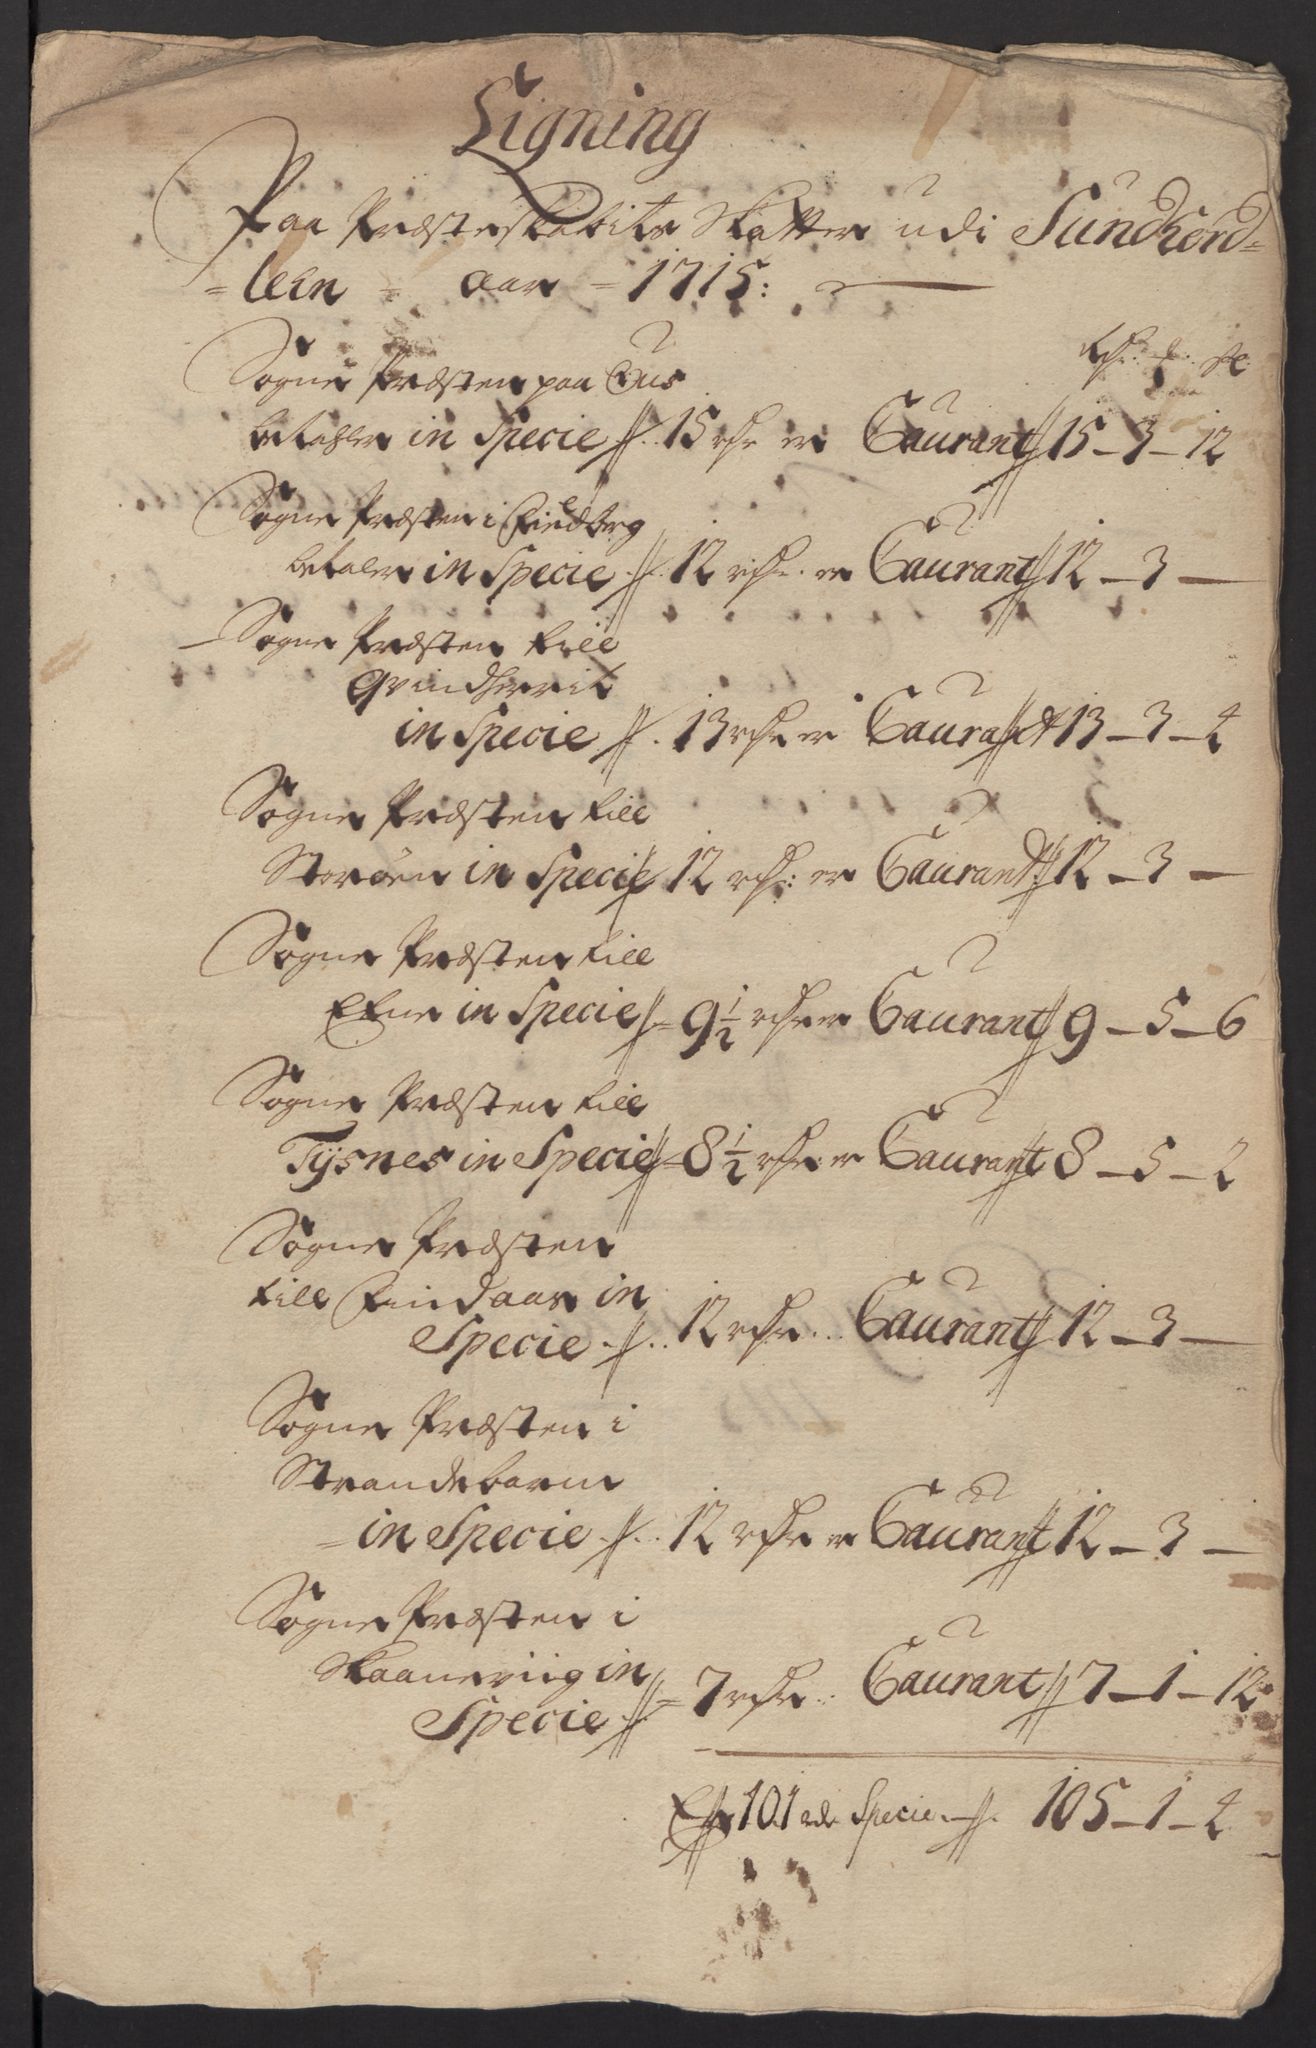 Ligning
Paa Præsteskabits Skatter udi Sundhord=
=leen - aar - 1715:
rdr: ß: 
Sogne Præsten paa Ous
betahler in Specie 15 rdr er Caurant 15 - 3 - 12
Sogne Præsten i Fiedberg
betaler in Specie 12 rdr. er Caurant 12 - 3 -
Sogne Præsten till
Qvindherrit
in Specie 13 rdr er Caurandt 13 - 3 - 4
Sogne Præsten till
Storöen in Specie 12 rdr: er Caurandt 12 - 3 -
Sogne Præsten till
Etne in Specie = 9½ rdr er Caurant 9 - 5 - 6
Sogne Præsten till
Tÿsnes in Specie = 8½ rdr: er Caurant 8 - 5 - 2
Sogne Præsten
till Findaas in
Specie 12 rdr. Caurant 12 - 3 -
Sogne Præsten i
Strandebarm
= in Specie 12 rdr er Caurant 12 - 3 -
Sogne Præsten i
Skaaneviig in
Specie = 7 rdr: Caurant 7 - 1 - 12
Er 101 rdr Specie 105 - 1 - 4